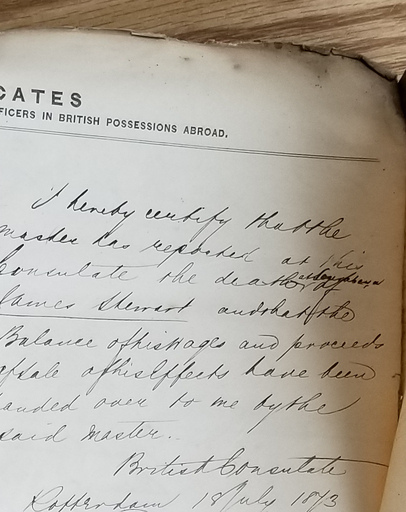 CATES
FICERS IN BRITISH POSSESSIONS ABROAD,
I hereby certify that the
master has reported at this
Consulate the death of
James Stewart and that the
Balance of his Wages and proceeds
of sale of his Effects have been
handed over to me by the
said master.
British Consulate
Rotterdam 18 July 1873